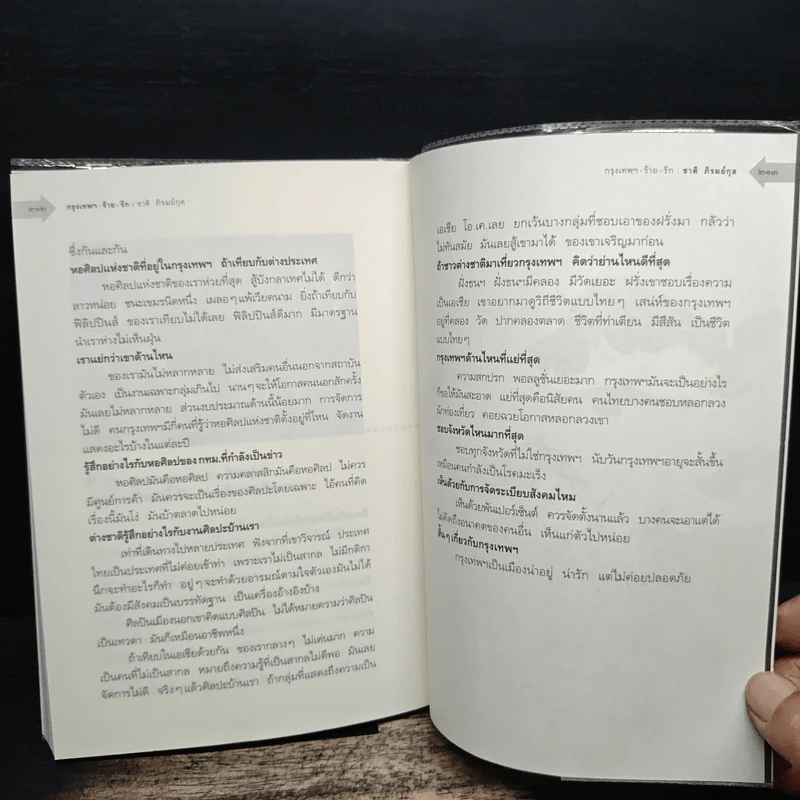 ๒๑๒
กรุงเทพฯ-ร้าย-รัก : ชาติ ภิรมย์กุล
ซึ่งกันและกัน
หอศิลปแห่งชาติที่อยู่ในกรุงเทพฯ ถ้าเทียบกับต่างประเทศ
หอศิลปแห่งชาติของเราห่วยที่สุด สู้บังกลาเทศไม่ได้ ดีกว่า
ลาวหน่อย ชนะเขมรนิดหนึ่ง เผลอๆแพ้เวียดนาม ยิ่งถ้าเทียบกับ
ฟิลิปปินส์ ของเราเทียบไม่ได้เลย ฟิลิปปินส์ดีมาก มีมาตรฐาน
นำเราห่างไม่เห็นฝุ่น
เราแย่กว่าเขาด้านไหน
ของเรามันไม่หลากหลาย ไม่ส่งเสริมคนอื่นนอกจากสถาบัน
ตัวเอง เป็นงานเฉพาะกลุ่มเกินไป นานๆจะให้โอกาสคนนอกสักครั้ง
มันเลยไม่หลากหลาย ส่วนงบประมาณด้านนี้น้อยมาก การจัดการ
ไม่ดี คนกรุงเทพฯมีกี่คนที่รู้ว่าหอศิลปแห่งชาติตั้งอยู่ที่ไหน จัดงาน
แสดงอะไรบ้างในแต่ละปี
รู้สึกอย่างไรกับหอศิลปของ กทม.ที่กำลังเป็นข่าว
หอศิลปมันคือหอศิลป ความคลาสสิกมันคือหอศิลป ไม่ควร
มีศูนย์การค้า มันควรจะเป็นเรื่องของศิลปะโดยเฉพาะ ไอ้คนที่คิด
เรื่องนี้มันโง่ มันบ้าตลาดไปหน่อย
ต่างชาติรู้สึกอย่างไรกับงานศิลปะบ้านเรา
เท่าที่เดินทางไปหลายประเทศ ฟังจากที่เขาวิจารณ์ ประเทศ
ไทยเป็นประเทศที่ไม่ค่อยเข้าท่า เพราะเราไม่เป็นสากล ไม่มีกติกา
นึกจะทำอะไรก็ทำ อยู่ๆจะทำด้วยอารมณ์ตามใจตัวเองมันไม่ได้
มันต้องมีสังคมเป็นบรรทัดฐาน เป็นเครื่องอ้างอิงบ้าง
ศิลปินเมืองนอกเขาคิดแบบศิลปิน ไม่ได้หมายความว่าศิลปิน
เป็นเทวดา มันก็เหมือนอาชีพหนึ่ง
ถ้าเทียบในเอเชียด้วยกัน ของเรากลางๆ ไม่เด่นมาก ความ
เป็นคนที่ไม่เป็นสากล หมายถึงความรู้ที่เป็นสากลไม่ดีพอ มันเลย
จัดการไม่ดี จริงๆแล้วศิลปะบ้านเรา ถ้ากลุ่มที่แสดงถึงความเป็น
กรุงเทพฯ-ร้าย-รัก : ชาติ ภิรมย์กุล
๒๑๓
เอเชีย โอ.เค.เลย ยกเว้นบางกลุ่มที่ชอบเอาของฝรั่งมา กลัวว่า
ไม่ทันสมัย มันเลยสู้เขามาได้ ของเขาเจริญมาก่อน
ถ้าชาวต่างชาติมาเที่ยวกรุงเทพฯ คิดว่าย่านไหนดีที่สุด
ฝั่งธนฯ ฝั่งธนฯมีคลอง มีวัดเยอะ ฝรั่งเขาชอบเรื่องความ
เป็นเอเชีย เขาอยากมาดูวิถีชีวิตแบบไทยๆ เสน่ห์ของกรุงเทพฯ
อยู่ที่คลอง วัด ปากคลองตลาด ชีวิตที่ท่าเตียน มีสีสัน เป็นชีวิต
แบบไทยๆ
กรุงเทพฯด้านไหนที่แย่ที่สุด
ความสกปรก พอลลูชั่นเยอะมาก กรุงเทพฯมันจะเป็นอย่างไร
ก็ขอให้มันสะอาด แย่ที่สุดคือนิสัยคน คนไทยบางคนชอบหลอกลวง
นักท่องเที่ยว คอยฉวยโอกาสหลอกลวงเขา
ชอบจังหวัดไหนมากที่สุด
ชอบทุกจังหวัดที่ไม่ใช่กรุงเทพฯ นับวันกรุงเทพฯอายุจะสั้นขึ้น
เหมือนคนกำลังเป็นโรคมะเร็ง
เห็นด้วยกับการจัดระเบียบสังคมไหม
เห็นด้วยพันเปอร์เซ็นต์ ควรจัดตั้งนานแล้ว บางคนจะเอาแต่ได้
ไม่คิดถึงอนาคตของคนอื่น เห็นแก่ตัวไปหน่อย
สั้นๆเกี่ยวกับกรุงเทพฯ
กรุงเทพฯเป็นเมืองน่าอยู่ น่ารัก แต่ไม่ค่อยปลอดภัย